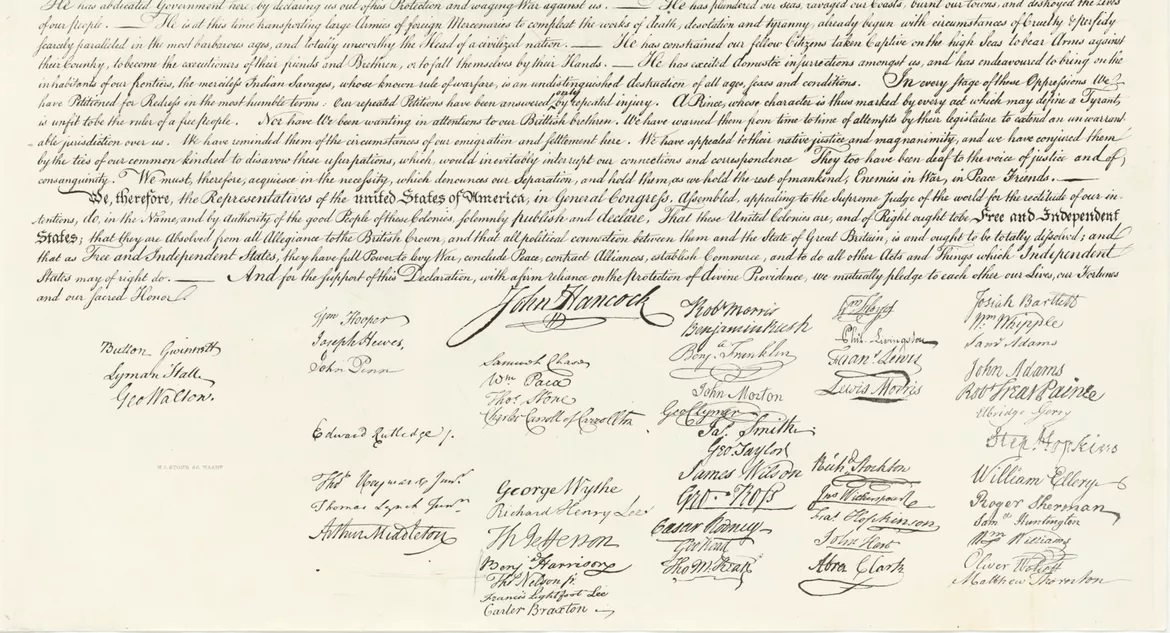 He has abdicated Government here, by declaring us out of his Protection and waging War against us. — He has plundered our seas, ravaged our Coasts, burnt our towns, and destroyed the Lives
of our people. — He is at this time transporting large Armies of foreign Mercenaries to compleat the works of death, desolation and tyranny, already begun with circumstances of Cruelty & perfidy
scarcely paralleled in the most barbarous ages, and totally unworthy the Head of a civilized nation. — He has constrained our fellow Citizens taken Captive on the high Seas to bear Arms against
their Country, to become the executioners of their friends and Brethren, or to fall themselves by their Hands. — He has excited domestic insurrections amongst us, and has endeavoured to bring on the
inhabitants of our frontiers, the merciless Indian Savages, whose known rule of warfare, is an undistinguished destruction of all ages, sexes and conditions. In every stage of these Oppressions We
have Petitioned for Redress in the most humble terms: Our repeated Petitions have been answered only by repeated injury. A Prince, whose character is thus marked by every act which may define a Tyrant,
is unfit to be the ruler of a free people. Nor have We been wanting in attentions to our Brittish brethren. We have warned them from time to time of attempts by their legislature to extend an unwarrant-
able jurisdiction over us. We have reminded them of the circumstances of our emigration and settlement here. We have appealed to their native justice and magnanimity, and we have conjured them
by the ties of our common kindred to disavow these usurpations, which, would inevitably interrupt our connections and correspondence They too have been deaf to the voice of justice and of
consanguinity. We must, therefore, acquiesce in the necessity, which denounces our Separation, and hold them, as we hold the rest of mankind, Enemies in War, in Peace Friends. —
We, therefore, the Representatives of the united States of America, in General Congress, Assembled, appealing to the Supreme Judge of the world for the rectitude of our in-
tentions, do, in the Name, and by Authority of the good People of these Colonies, solemnly publish and declare, That these United Colonies are, and of Right ought to be Free and Independent
States; that they are Absolved from all Allegiance to the British Crown, and that all political connection between them and the State of Great Britain, is and ought to be totally dissolved; and
that as Free and Independent States, they have full Power to levy War, conclude Peace, contract Alliances, establish Commerce, and to do all other Acts and Things which Independent
States may of right do. — And for the support of this Declaration, with a firm reliance on the protection of divine Providence, we mutually pledge to each other our Lives, our Fortunes
and our sacred Honor.
Button Gwinnett
Lyman Hall
Geo Walton.
Wm Hooper
Joseph Hewes,
John Penn
Edward Rutledge /.
Thos Heyward Junr.
Thomas Lynch Junr.
Arthur Middleton
John Hancock
Samuel Chase
Wm Paca
Thos. Stone
Charles Carroll of Carrollton
George Wythe
Richard Henry Lee
Th Jefferson
Benj Harrison
Thos Nelson jr.
Francis Lightfoot Lee
Carter Braxton
Robt Morris
Benjamin Rush
Benj. Franklin
John Morton
Geo Clymer
Jas. Smith
Geo. Taylor
James Wilson
Geo. Ross
Caesar Rodney
Geo Read
Tho M:Kean
Wm Floyd
Phil. Livingston
Frans. Lewis
Lewis Morris
Richd. Stockton
Jno Witherspoon
Fras. Hopkinson
John Hart
Abra Clark
Josiah Bartlett
Wm. Whipple
Saml Adams
John Adams
Robt Treat Paine
Elbridge Gerry
Step. Hopkins
William Ellery
Roger Sherman
Saml Huntington
Wm Williams
Oliver Wolcott
Matthew Thornton